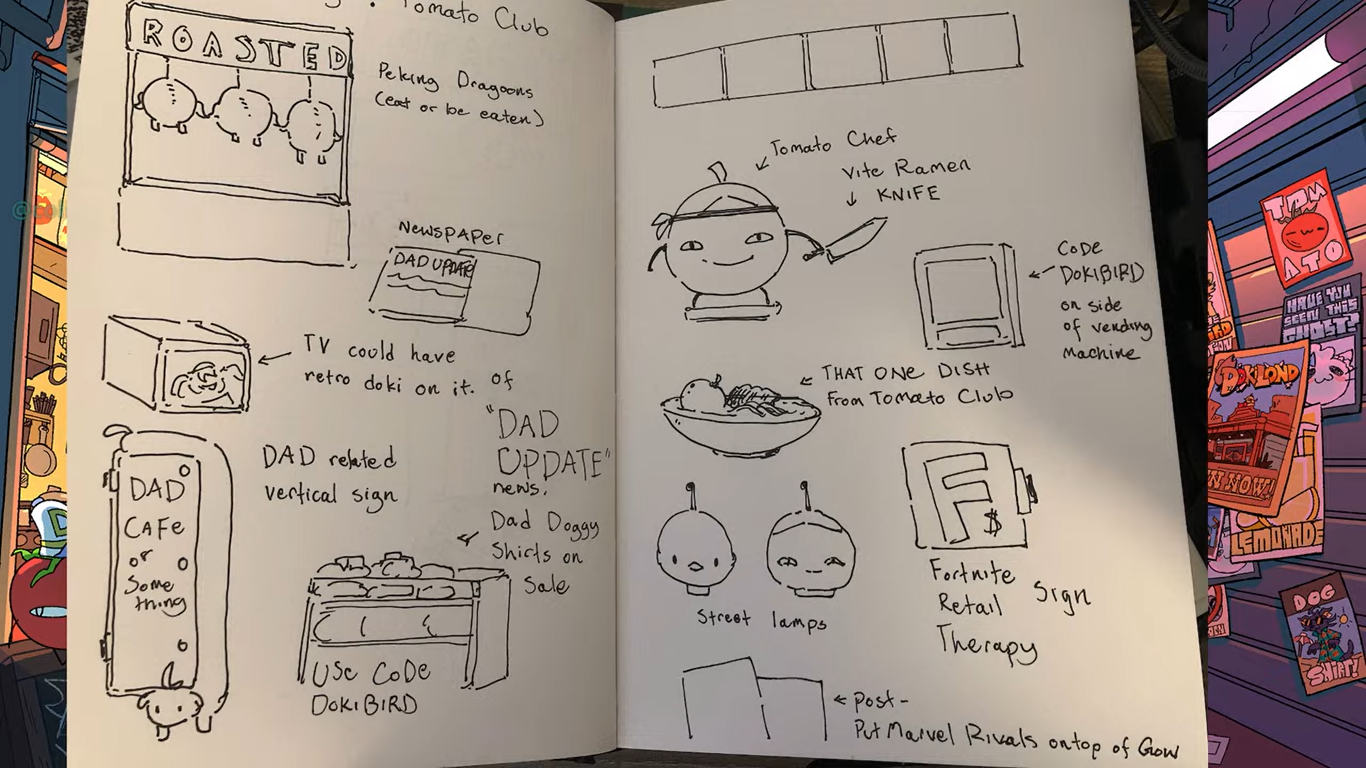 Tomato Club
ROASTED
Peking Dragoons
(eat or be eaten)
NEWSPAPER
DAD UPDATE
TV could have
retro doki on it.
of
"DAD
UPDATE"
news.
DAD related
vertical sign
DAD
CAFE
or
Some
thing
Dad Doggy
Shirts on
Sale
USE CODE
DOKIBIRD
Tomato Chef
Vite Ramen
KNIFE
CODE
DOKIBIRD
on side
of vending
machine
THAT ONE DISH
From Tomato Club
F
$
Fortnite
Retail
Therapy
Sign
Street lamps
Post-
Put Marvel Rivals on top of GOW
TOM
ATO
HAVE YOU
SEEN THIS
GHOST?
DOKILOND
LEMONADE
DOG
SHIRT!